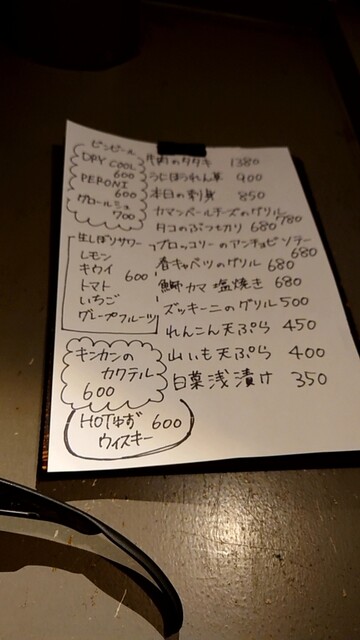 ビンビール
DRY COOL
600
PERONI
600
グロールシュ
700
生しぼりサワー
レモン
キウイ 600
トマト
いちご
グレープフルーツ
キンカンの
カクテル
600
HOTゆず 600
ウィスキー
牛肉のタタキ 1380
うにほうれん草 900
本日の刺身 850
カマンベールチーズのグリル
780
タコのぶつ切り 680
ブロッコリーのアンチョビソテー
680
春キャベツのグリル 680
鰤カマ塩焼き 680
ズッキーニのグリル 500
れんこん天ぷら 450
山いも天ぷら 400
白菜浅漬け 350